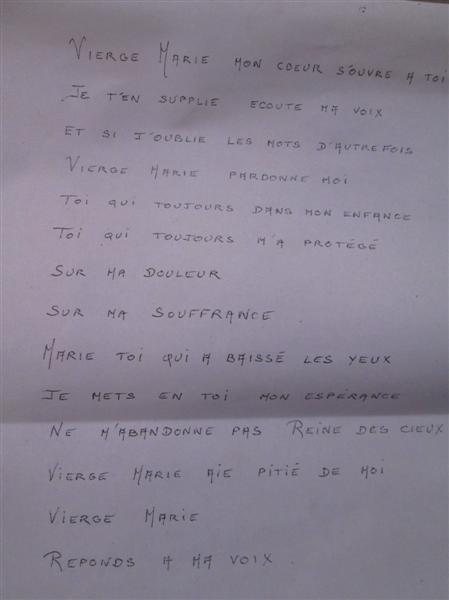 VIERGE MARIE MON COEUR S'OUVRE A TOI
JE T'EN SUPPLIE ECOUTE MA VOIX
ET SI J'OUBLIE LES MOTS D'AUTREFOIS
VIERGE MARIE PARDONNE MOI
TOI QUI TOUJOURS DANS MON ENFANCE
TOI QUI TOUJOURS M'A PROTÉGÉ
SUR MA DOULEUR
SUR MA SOUFFRANCE
MARIE TOI QUI A BAISSÉ LES YEUX
JE METS EN TOI MON ESPÉRANCE
NE M'ABANDONNE PAS REINE DES CIEUX
VIERGE MARIE AIE PITIÉ DE MOI
VIERGE MARIE
REPONDS A MA VOIX.